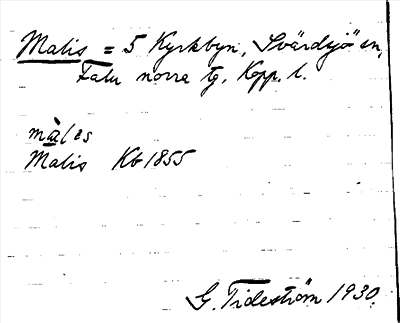 Malis = 5 Kyrkbyn, Svärdsjö sn,
Falu norra tg, Kopp. l.
màles
Malis Kb 1855
G. Tideström 1930.